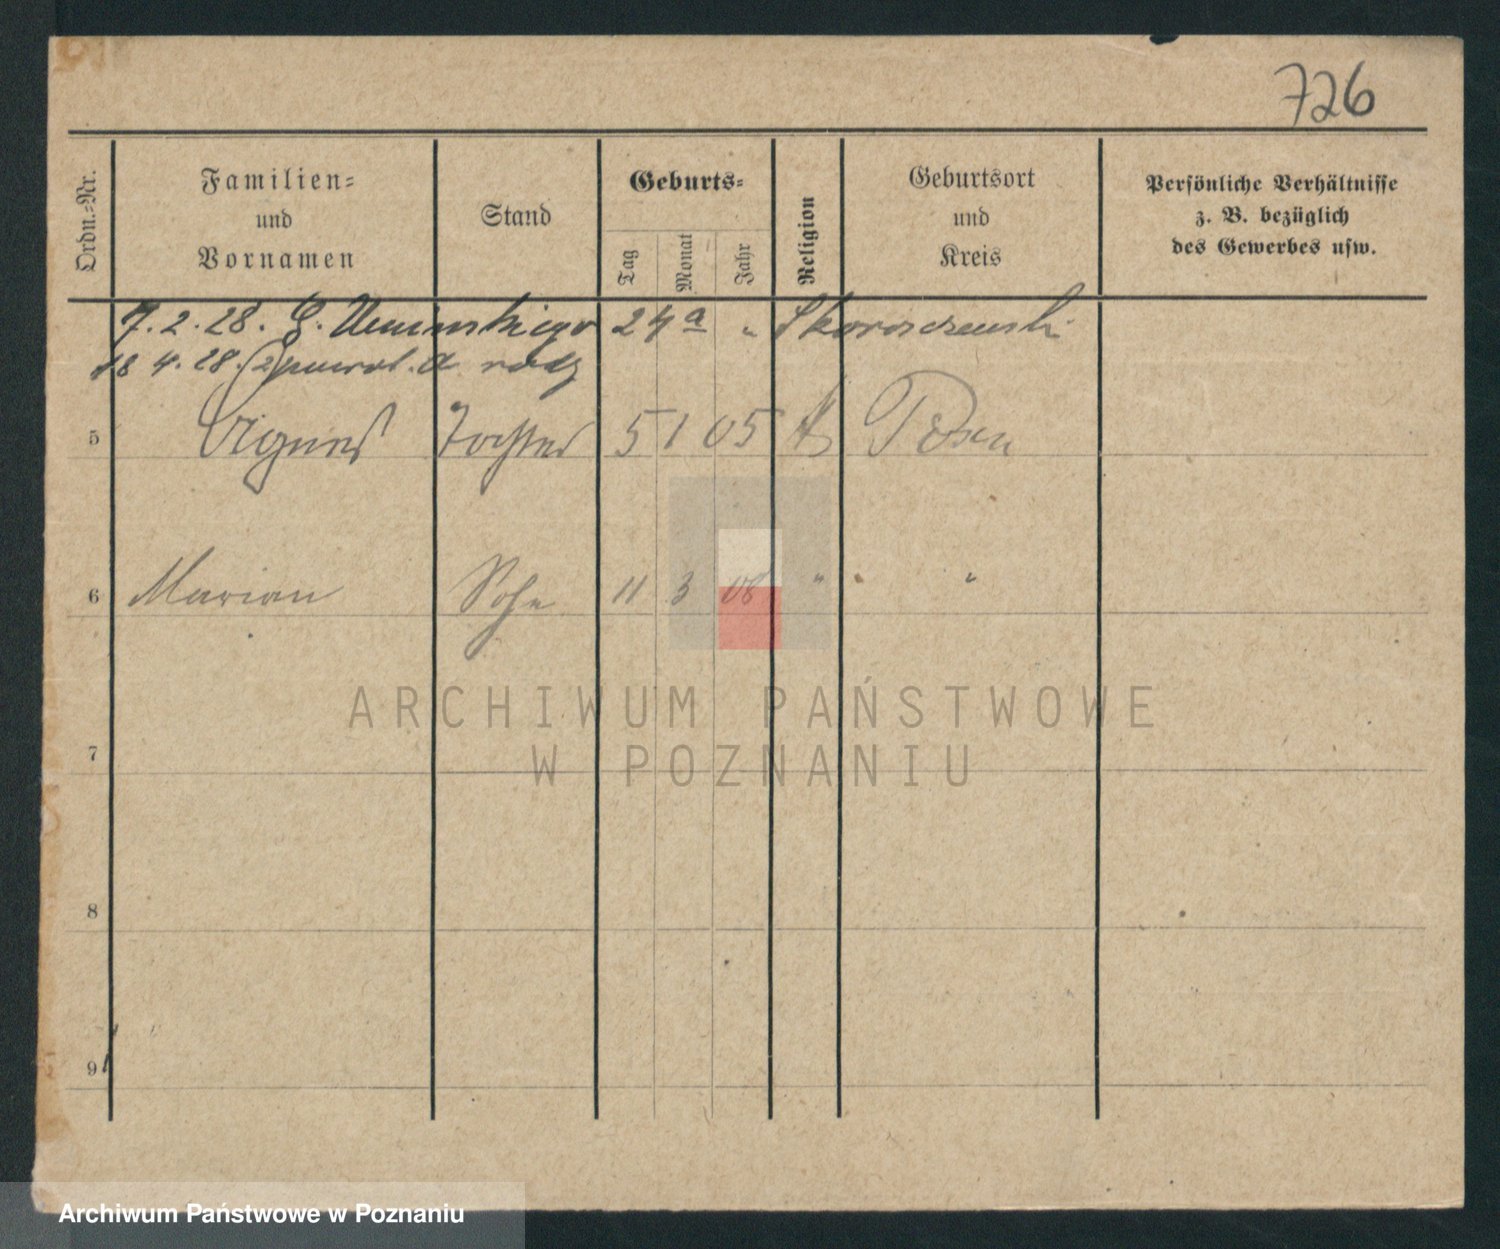 726
Ordn.-Nr.
Familien-
und
Vornamen
Stand
Geburts-
Tag
Monat
Jahr
Religion
Geburtsort
und
Kreis
Persönliche Verhältnisse
z. B. bezüglich
des Gewerbes usw.
7. 2. 28. G. Umińskiego 24 a " Skoroszewski
18 4. 28.
5 Agnes Tochter 5 1 05 k Posen
6 Marian Sohn 11 3 08 " "
7
8
9
ARCHIWUM PAŃSTWOWE
W POZNANIU
Archiwum Państwowe w Poznaniu